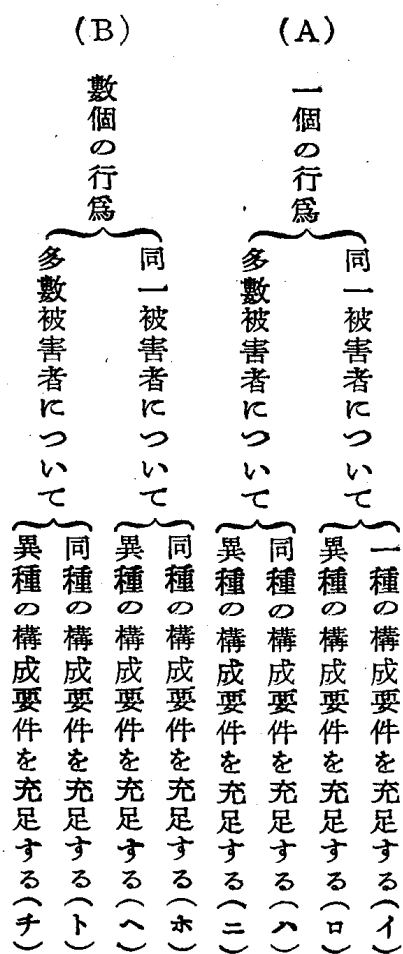 (A)
一個の行爲
同一被害者について
一種の構成要件を充足する(イ)
異種の構成要件を充足する(ロ)
多數被害者について
同種の構成要件を充足する(ハ)
異種の構成要件を充足する(ニ)
(B)
數個の行爲
同一被害者について
同種の構成要件を充足する(ホ)
異種の構成要件を充足する(ヘ)
多數被害者について
同種の構成要件を充足する(ト)
異種の構成要件を充足する(チ)